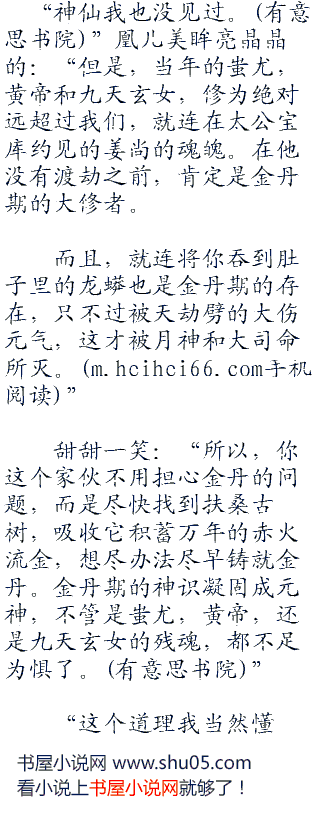 “神仙我也没见过。(有意
思书院)”凰儿美眸亮晶晶
的：“但是，当年的蚩尤，
黄帝和九天玄女，修为绝对
远超过我们，就连在太公宝
库约见的姜尚的魂魄。在他
没有渡劫之前，肯定是金丹
期的大修者。
而且，就连将你吞到肚
子里的龙蟒也是金丹期的存
在，只不过被天劫劈的大伤
元气，这才被月神和大司命
所灭。(m.hcihci66.com手机
阅读)”
甜甜一笑：“所以，你
这个家伙不用担心金丹的问
题，而是尽快找到扶桑古
树，吸收它积蓄万年的赤火
流金，想尽办法尽早铸就金
丹。金丹期的神识凝固成元
神，不管是蚩尤，黄帝，还
是九天玄女的残魂，都不足
为惧了。(有意思书院)”
“这个道理我当然懂
书屋小说网 www.shu05.com
看小说上书屋小说网就够了！